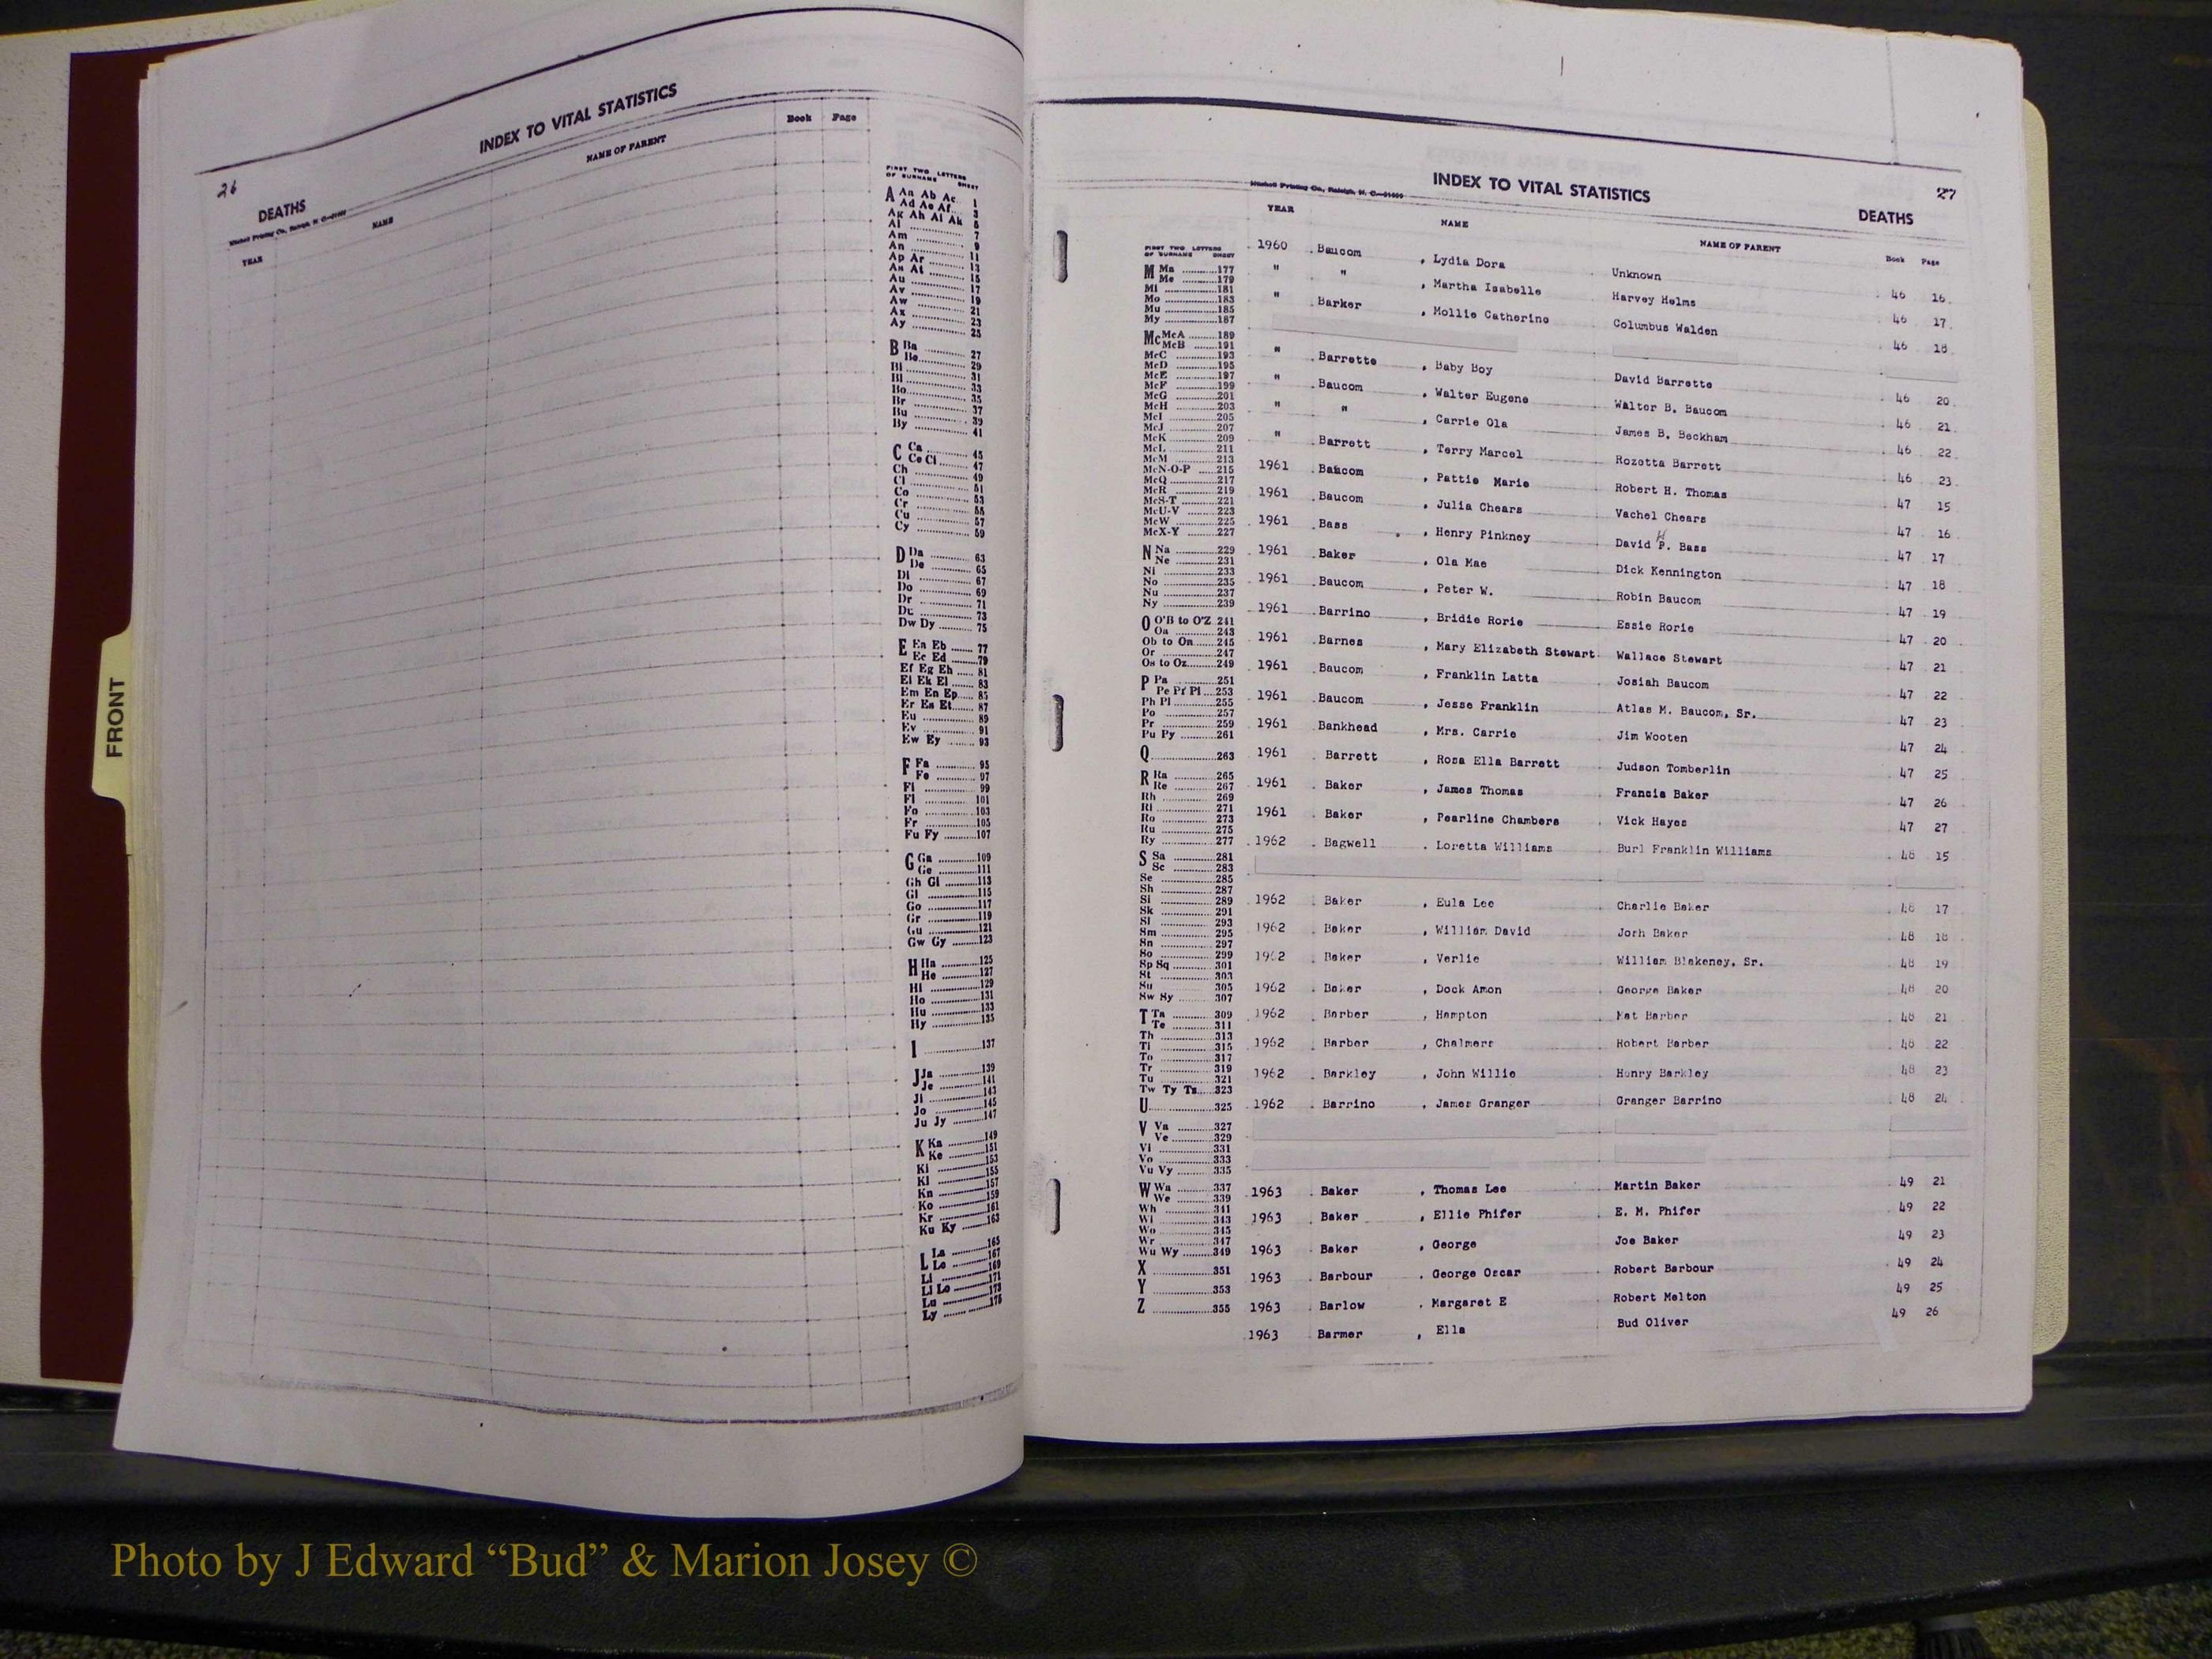 INDEX TO VITAL STATISTICS
26
DEATHS
Mitchell Printing Co., Raleigh, N. C.
YEAR NAME NAME OF PARENT Book Page
FIRST TWO LETTERS
OF SURNAME SHEET
A Aa Ab Ac 1
Ad Ae Af 3
Ag Ah Ai Ak 5
Al 7
Am 9
An 11
Ap Ar 13
As At 15
Au 17
Av 19
Aw 21
Ax 23
Ay 25
B Ba 27
Be 29
Bi 31
Bl 33
Bo 35
Br 37
Bu 39
By 41
C Ca 45
Ce Ci 47
Ch 49
Cl 51
Co 53
Cr 55
Cu 57
Cy 59
D Da 63
De 65
Di 67
Do 69
Dr 71
Du 73
Dw Dy 75
E Ea Eb 77
Ec Ed 79
Ef Eg Eh 81
Ei Ek El 83
Em En Ep 85
Er Es Et 87
Eu 89
Ev 91
Ew Ey 93
F Fa 95
Fe 97
Fi 99
Fl 101
Fo 103
Fr 105
Fu Fy 107
G Ga 109
Ge 111
Gh Gi 113
Gl 115
Go 117
Gr 119
Gu 121
Gw Gy 123
H Ha 125
He 127
Hi 129
Ho 131
Hu 133
Hy 135
I 137
J Ja 139
Je 141
Ji 143
Jo 145
Ju Jy 147
K Ka 149
Ke 151
Ki 153
Kl 155
Kn 157
Ko 159
Kr 161
Ku Ky 163
L La 165
Le 167
Li 169
Ll Lo 171
Lu 173
Ly 175
FRONT
Mitchell Printing Co., Raleigh, N. C.
INDEX TO VITAL STATISTICS
27
DEATHS
YEAR NAME NAME OF PARENT Book Page
FIRST TWO LETTERS
OF SURNAME SHEET
M Ma 177
Me 179
Mi 181
Mo 183
Mu 185
My 187
Mc McA 189
McB 191
McC 193
McD 195
McE 197
McF 199
McG 201
McH 203
McI 205
McJ 207
McK 209
McL 211
McM 213
McN-O-P 215
McQ 217
McR 219
McS-T 221
McU-V 223
McW 225
McX-Y 227
N Na 229
Ne 231
Ni 233
No 235
Nu 237
Ny 239
O O'B to O'Z 241
Oa 243
Ob to On 245
Or 247
Os to Oz 249
P Pa 251
Pe Pf Pi 253
Ph Pl 255
Po 257
Pr 259
Pu Py 261
Q 263
R Ra 265
Re 267
Rh 269
Ri 271
Ro 273
Ru 275
Ry 277
S Sa 281
Sc 283
Se 285
Sh 287
Si 289
Sk 291
Sl 293
Sm 295
Sn 297
So 299
Sp Sq 301
St 303
Su 305
Sw Sy 307
T Ta 309
Te 311
Th 313
Ti 315
To 317
Tr 319
Tu 321
Tw Ty Ts 323
U 325
V Va 327
Ve 329
Vi 331
Vo 333
Vu Vy 335
W Wa 337
We 339
Wh 341
Wi 343
Wo 345
Wr 347
Wu Wy 349
X 351
Y 353
Z 355
1960 Baucom , Lydia Dora Unknown 46 16
" " , Martha Isabelle Harvey Helms 46 17
" Barker , Mollie Catherine Columbus Walden 46 18
" Barrette , Baby Boy David Barrette 46 20
" Baucom , Walter Eugene Walter B. Baucom 46 21
" " , Carrie Ola James B. Beckham 46 22
" Barrett , Terry Marcel Rozetta Barrett 46 23
1961 Baucom , Pattie Marie Robert H. Thomas 47 15
1961 Baucom , Julia Chears Vachel Chears 47 16
1961 Bass , Henry Pinkney David H. Bass 47 17
1961 Baker , Ola Mae Dick Kennington 47 18
1961 Baucom , Peter W. Robin Baucom 47 19
1961 Barrino , Bridie Rorie Essie Rorie 47 20
1961 Barnes , Mary Elizabeth Stewart Wallace Stewart 47 21
1961 Baucom , Franklin Latta Josiah Baucom 47 22
1961 Baucom , Jesse Franklin Atlas M. Baucom, Sr. 47 23
1961 Bankhead , Mrs. Carrie Jim Wooten 47 24
1961 Barrett , Rosa Ella Barrett Judson Tomberlin 47 25
1961 Baker , James Thomas Francis Baker 47 26
1961 Baker , Pearline Chambers Vick Hayes 47 27
1962 Bagwell , Loretta Williams Burl Franklin Williams 48 15
1962 Baker , Eula Lee Charlie Baker 48 17
1962 Baker , William David Josh Baker 48 18
1962 Baker , Verlie William Blakeney, Sr. 48 19
1962 Baker , Dock Amon George Baker 48 20
1962 Barber , Hampton Nat Barber 48 21
1962 Barber , Chalmers Robert Barber 48 22
1962 Barkley , John Willie Henry Barkley 48 23
1962 Barrino , James Granger Granger Barrino 48 24
1963 Baker , Thomas Lee Martin Baker 49 21
1963 Baker , Ellie Phifer E. M. Phifer 49 22
1963 Baker , George Joe Baker 49 23
1963 Barbour , George Oscar Robert Barbour 49 24
1963 Barlow , Margaret E Robert Melton 49 25
1963 Barmer , Ella Bud Oliver 49 26
Photo by J Edward “Bud” & Marion Josey ©